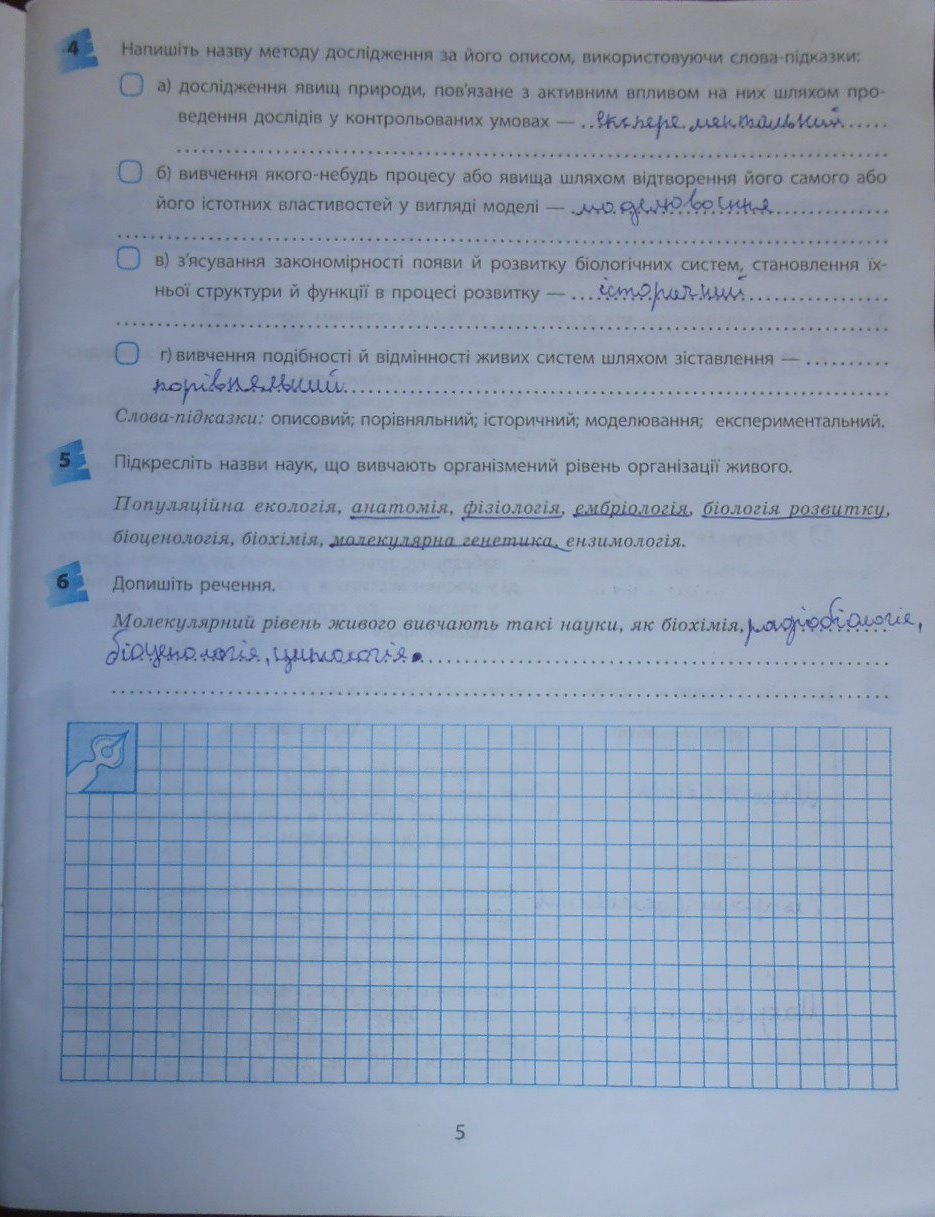 4 Напишіть назву методу дослідження за його описом, використовуючи слова-підказки:
а) дослідження явищ природи, пов'язане з активним впливом на них шляхом про-
ведення дослідів у контрольованих умовах — експерементальний
б) вивчення якого-небудь процесу або явища шляхом відтворення його самого або
його істотних властивостей у вигляді моделі — моделювання
в) з'ясування закономірності появи й розвитку біологічних систем, становлення їх-
ньої структури й функції в процесі розвитку — історичний
г) вивчення подібності й відмінності живих систем шляхом зіставлення —
порівняльний
Слова-підказки: описовий; порівняльний; історичний; моделювання; експериментальний.
5 Підкресліть назви наук, що вивчають організмений рівень організації живого.
Популяційна екологія, анатомія, фізіологія, ембріологія, біологія розвитку,
біоценологія, біохімія, молекулярна генетика, ензимологія.
6 Допишіть речення.
Молекулярний рівень живого вивчають такі науки, як біохімія, радіобіологія,
біоценологія, цитологія.
5